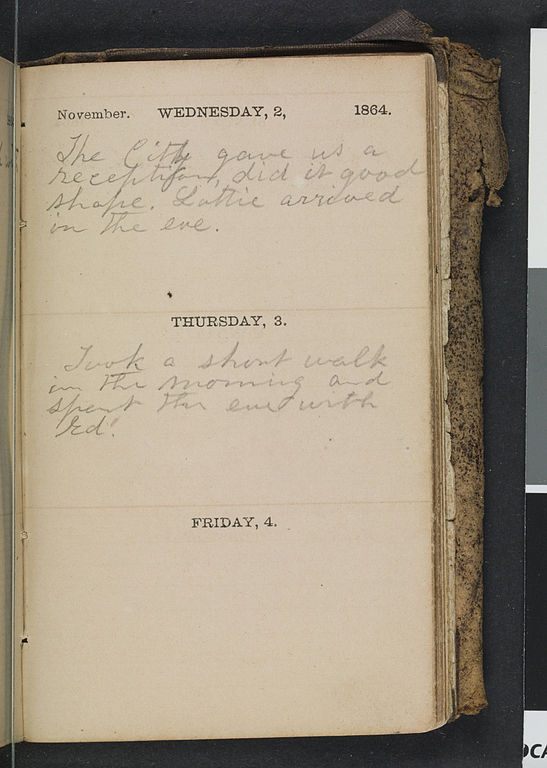 November. WEDNESDAY, 2, 1864.
The City gave us a
reception, did it good
shape. Lottie arrived
in the eve.
THURSDAY, 3.
Took a short walk
in the morning and
spent the eve with
Ed.
FRIDAY, 4.
OCA